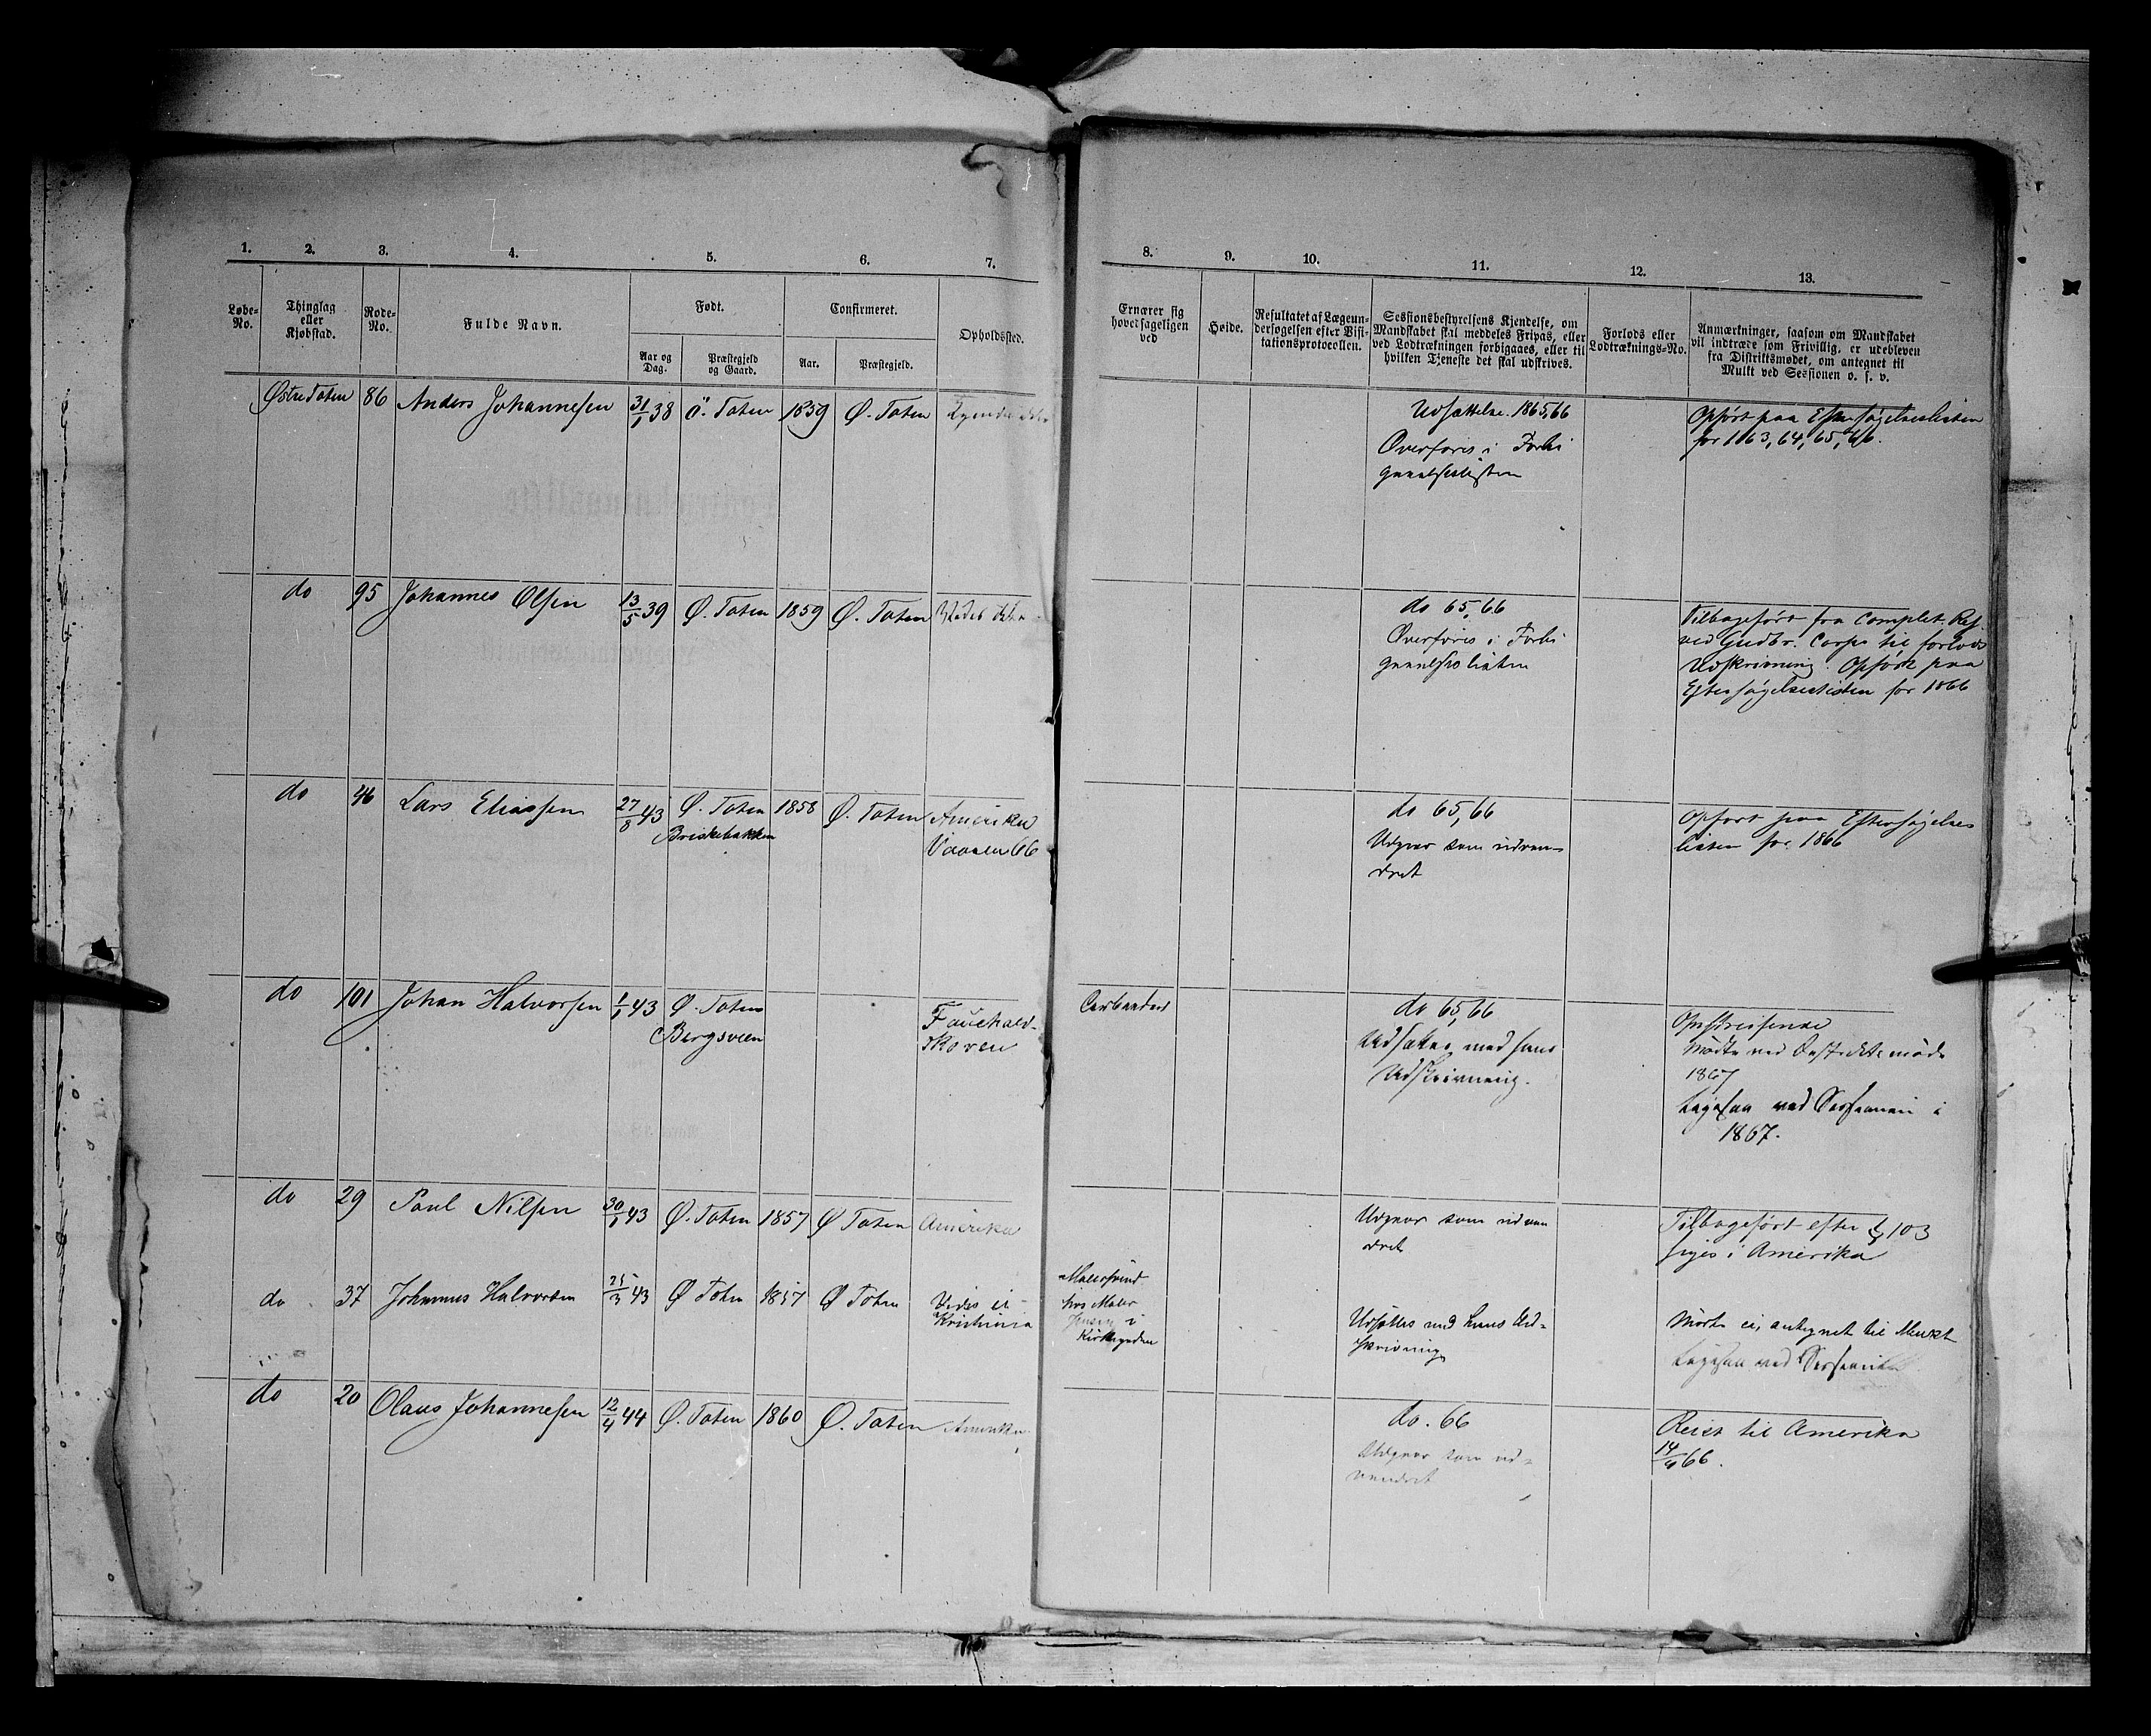 1. 2. 3. 4. 5. 6. 7.
8. 9. 10. 11. 12. 13.
Løbe-
No.
Thinglag
eller
Kjøbstad.
Rode-
No.
Fulde Navn.
Født.
Aar og
Dag.
Præstegjeld
og Gaard.
Confirmeret.
Aar.
Præstegjeld.
Opholdssted.
Ernærer sig
hovedsageligen
ved
Høide.
Resultatet af Lægeun-
dersøgelsen efter Visi-
tationsprotocollen.
Sessionsbestyrelsens Kjendelse, om
Mandskabet skal meddeles Fripas, eller
ved Lodtrækningen forbigaaes, eller til
hvilken Tjeneste det skal udskrives.
Forlods eller
Lodtræknings-No.
Anmærkninger, saasom om Mandskabet
vil indtræde som Frivillig, er udebleven
fra Distriktsmødet, om antegnet til
Mulkt ved Sessionen o. s. v.
Østre Toten 86 Anders Johannesen 31/1 38 Ö. Toten 1859 Ø. Toten
Udsættelse 1865,66
Overføres i Forbi
gaaelseslisten
Opført paa Eftersøgelseslisten
for 1863, 64, 65, 66.
do 95 Johannes Olsen 13/5 39 Ø. Toten 1859 Ø. Toten
do 65,66
Overføres i Forbi
gaaelseslisten
Tilbageført fra Complet. Res.
ved Gudbr. Corps til forlods
Udskrivning. Opført paa
Eftersøgelseslisten for 1866
do 46 Lars Eliassen 27/8 43 Ø. Toten 1858 Ø. Toten Amerika
Briskebakken
Vaaren 66
do 65,66
Udgaar som udvan-
dret
Opført paa Eftersøgelses
listen for 1866
do 101 Johan Halvorsen 1/1 43 Ø. Toten
Bergsveen
Fauchald-
skoven
do 65,66
Udsættes med hans
Udskrivning.
Omstreifende
Mødte ved Distriktsmøde
1867
ved Sessionen i
1867.
do 29 Paul Nilsen 30/1 43 Ø. Toten 1857 Ø Toten Amerika
Udgaar som udvan
dret
Tilbageført efter § 103
siges i Amerika
do 37 Johannes Halvorsen 25/3 43 Ø Toten 1857 Ø Toten
Kristiania
Malersvend
hos Maler
i
Kirkegaden
Udsættes med hans Ud-
skrivning
Mødte ei, antegnet til Mulkt
ved
do 20 Olaus Johannesen 12/4 44 Ø. Toten 1860 Ø. Toten Amerika
do. 66
Udgaar som ud-
vandret
Reist til Amerika
14/4 66.